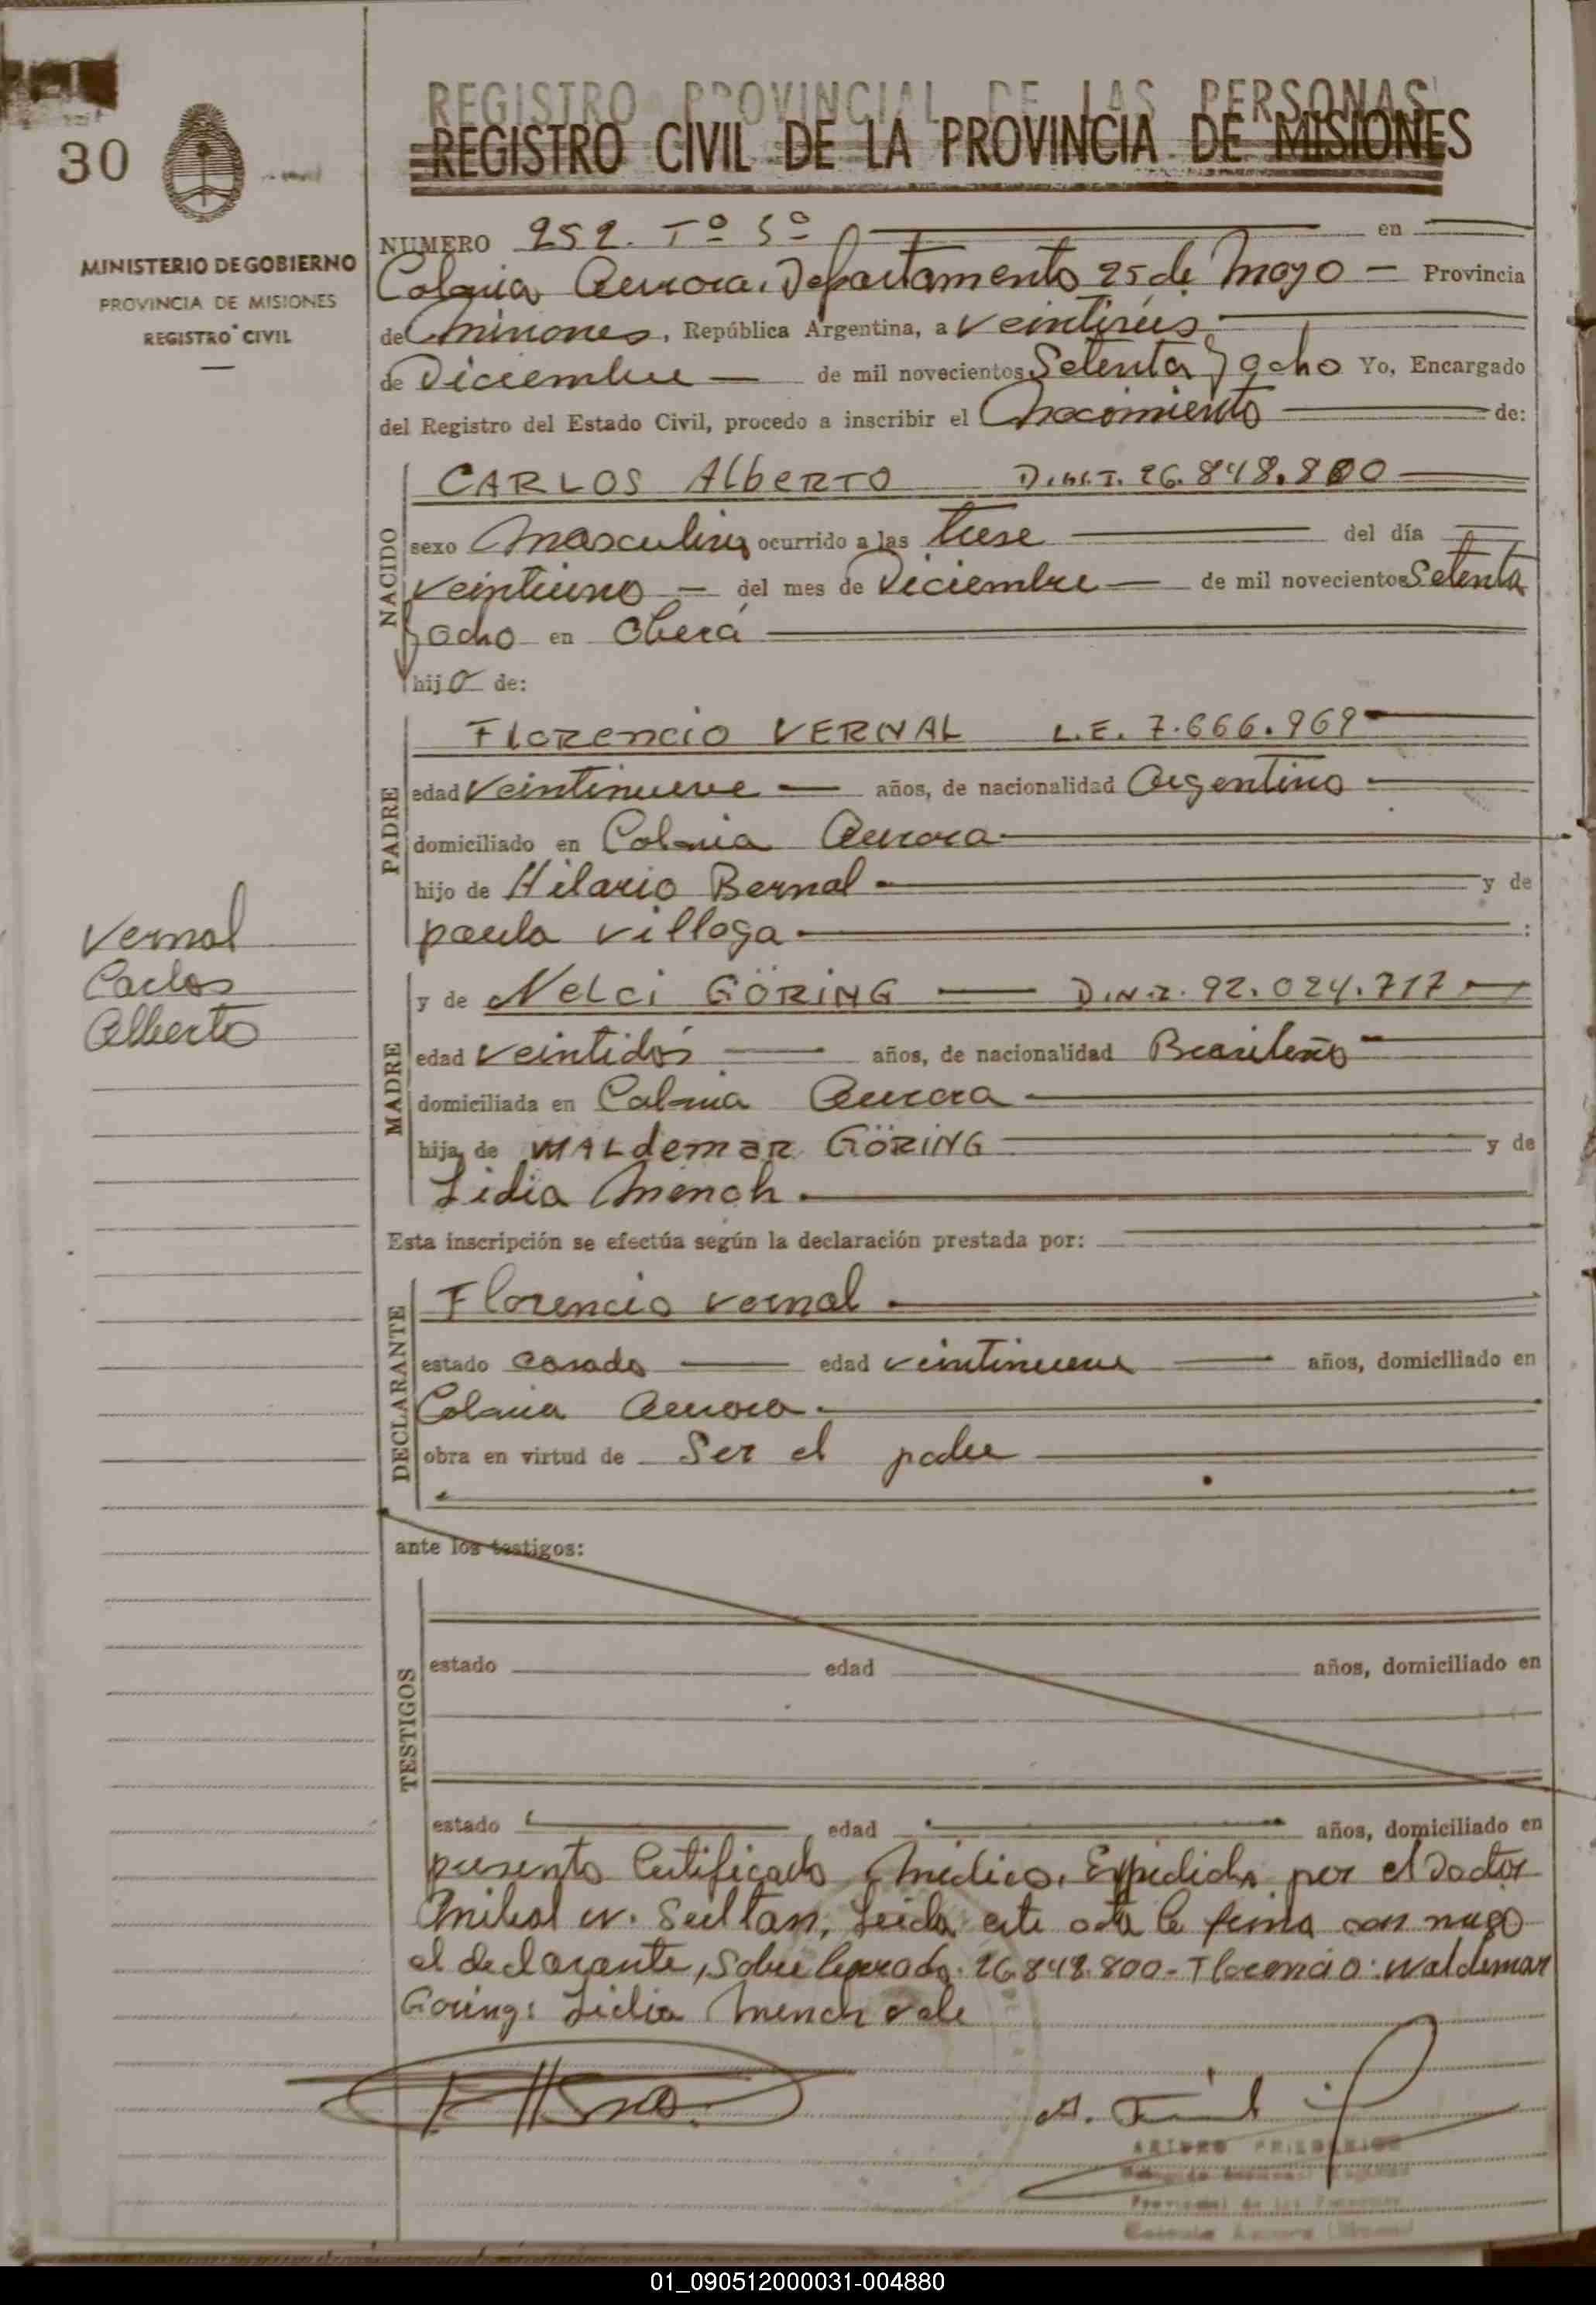 30
MINISTERIO DE GOBIERNO
PROVINCIA DE MISIONES
REGISTRO CIVIL
REGISTRO PROVINCIAL DE LAS PERSONAS
REGISTRO CIVIL DE LA PROVINCIA DE MISIONES
NUMERO 252. Tº 5º en
Colonia Aurora, Departamento 25 de Mayo - Provincia
de Misiones, República Argentina, a veintiseis
de Diciembre de mil novecientos Setenta y ocho Yo, Encargado
del Registro del Estado Civil, procedo a inscribir el Nacimiento de:
NACIDO
CARLOS AlbeRTO D.N.I. 26.848.800
sexo Masculino ocurrido a las trese del día
veintiuno - del mes de Diciembre de mil novecientos Setenta
y ocho en Oberá
hijo de:
PADRE
FlOREncio VERNAL L.E. 7.666.969
edad veintinueve años, de nacionalidad Argentino
domiciliado en Colonia Aurora
hijo de Hilario Bernal y de
paula villaga :
Vernal
Carlos
Alberto
MADRE
y de Nelci GÖRING D.N.I. 92.024.717
edad veintidós años, de nacionalidad Brasileño
domiciliada en Colonia Aurora
hija de WALdemaR GÖRING y de
Lidia Mench
Esta inscripción se efectúa según la declaración prestada por:
DECLARANTE
Florencio vernal
estado casado edad veintinueve años, domiciliado en
Colonia Aurora
obra en virtud de Ser el padre
ante los testigos:
TESTIGOS
estado edad años, domiciliado en
estado edad años, domiciliado en
presento Certificado Médico, Expedido por el Doctor
Anibal W. Sultan, Leida este acta la firma con migo
el declarante, Sobre borrado: 26.848.800 - Florencio: Waldemar
Goring: Lidia Mench vale
ARTURO FRIEDERICH
Provincial de las Personas
Colonia Aurora (Misiones)
01_090512000031-004880